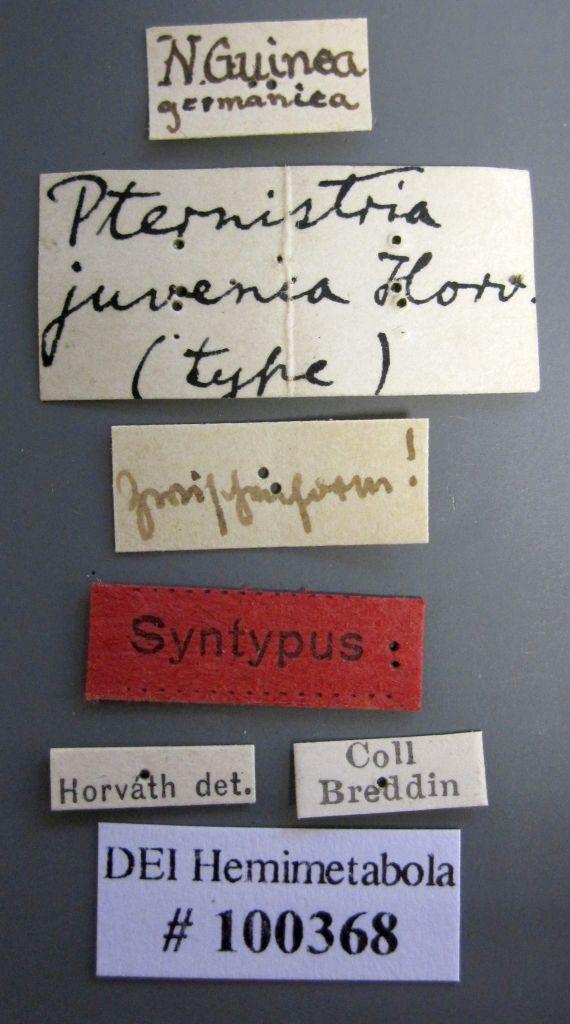 N. Guinea
germanica
Pternistria
juvenca Horv.
(type)
Zwischenform!
Syntypus :
Horváth det.
Coll
Breddin
DEI Hemimetabola
# 100368